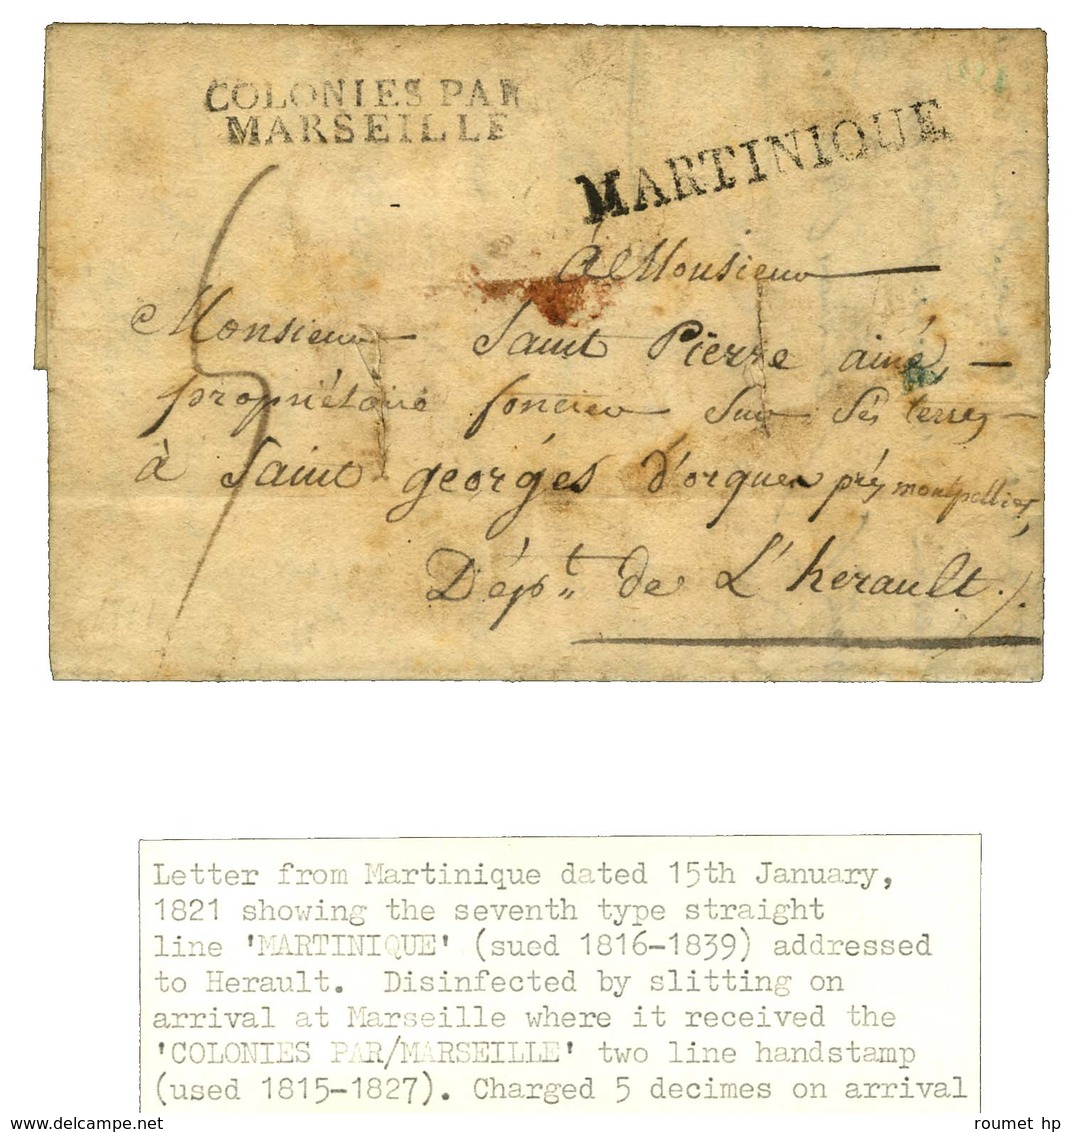 COLONIES PAR
MARSEILLE
MARTINIQUE
5
à Monsieur
Monsieur Saint Pierre ainé
propriétaire foncier sur ses terres
à Saint georges d'orques près montpellier,
Dépt. de L'herault.
Letter from Martinique dated 15th January,
1821 showing the seventh type straight
line 'MARTINIQUE' (sued 1816-1839) addressed
to Herault. Disinfected by slitting on
arrival at Marseille where it received the
'COLONIES PAR/MARSEILLE' two line handstamp
(used 1815-1827). Charged 5 decimes on arrival
www.delcampe.net
roumet hp